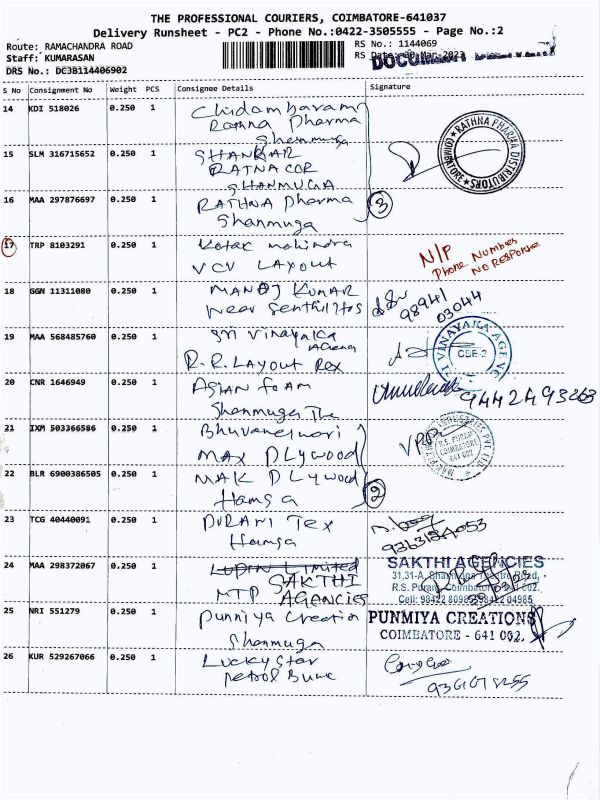 THE PROFESSIONAL COURIERS, COIMBATORE-641037
Delivery Runsheet - PC2 - Phone No.:0422-3505555 - Page No.:2
Route: RAMACHANDRA ROAD
RS No.: 1144069
Staff: KUMARASAN
RS Date: 30-Mar-2023
DRS No.: DCJB114406902
S No Consignment No Weight PCS Consignee Details Signature
14 KDI 518026 0.250 1 Chidambaram
Rathna Pharma
Shanmuga
RATHNA PHARMA DISTRIBUTORS COIMBATORE
15 SLM 316715652 0.250 1 SHANKAR
RATNACOR
SHANMUGA
16 MAA 297876697 0.250 1 RATHNA Pharma 3
Shanmuga
17 TRP 8103291 0.250 1 Kotak mahindra
VCV LAYOUT
N/P
Phone Number
NO RESPONSE
18 GGN 11311080 0.250 1 MANOJ KUMAR
near Senthil
98941
03044
19 MAA 568485760 0.250 1 Sri Vinayaka
R.R. LAYOUT Rex
I VINAYAKA AGENC
CBE-2
20 CNR 1646949 0.250 1 ASIAN foam
Shanmuga The
9442493263
21 IXM 503366586 0.250 1 Bhuvaneswari
MAX PLywood
R.S. PURAM
COIMBATORE
641 002.
22 BLR 6900386505 0.250 1 MAK PLywood 2
Hamsa
23 TCG 40440091 0.250 1 DURANI Tex
Hamsa
24 MAA 298372067 0.250 1 LUPIN Limited
SAKTHI
MTP AGENCIES
SAKTHI AGENCIES
31,31-A,
R.S. Puram, Coimbatore
Cell: 98422 04985
25 NRI 551279 0.250 1 Punmiya Creation
Shanmuga
PUNMIYA CREATIONS
COIMBATORE - 641 002.
26 KUR 529267066 0.250 1 Lucky Star
petrol Bunk